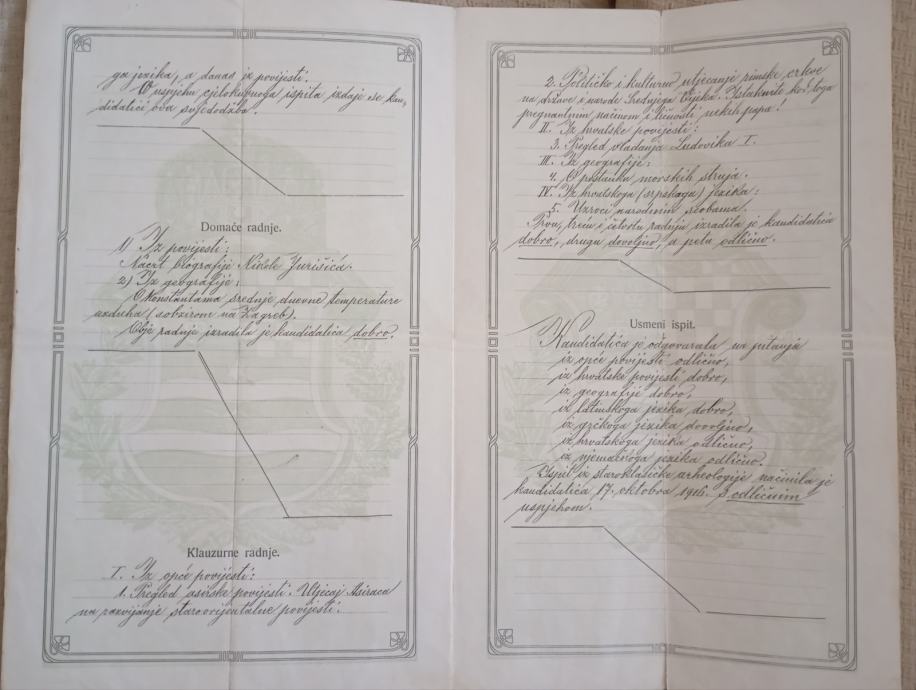 ga jezika, a danas iz povijesti.
O uspjehu cjelokupnoga ispita izdaje se kan-
didatici ova svjedodžba.
Domaće radnje.
1) Iz povijesti:
Nacrt biografije Nikole Jurišića.
2) Iz geografije:
O konstantama srednje dnevne temperature
uzduha (s obzirom na Zagreb).
Obje radnje izradila je kandidatica dobro.
Klauzurne radnje.
I. Iz opće povijesti:
1. Pregled asirske povijesti. Utjecaj Asiraca
na razvijanje staroorijentalne povijesti.
2. Političko i kulturno utjecanje rimske crkve
na države i narode Srednjega Vijeka. Istaknute kod toga
pregnantnim načinom i ličnosti nekih papa!
II. Iz hrvatske povijesti:
3. Pregled vladanja Ludovika I.
III. Iz geografije:
4. O postanku morskih struja.
IV. Iz hrvatskoga (srpskoga) jezika:
5. Uzroci narodnim seobama.
Prvu, treću i četvrtu radnju izradila je kandidatica
dobro, drugu dovoljno, a petu odlično.
Usmeni ispit.
Kandidatica je odgovarala na pitanja
iz opće povijesti odlično,
iz hrvatske povijesti dobro,
iz geografije dobro,
iz latinskoga jezika dobro,
iz grčkoga jezika dovoljno,
iz hrvatskoga jezika odlično,
iz njemačkoga jezika odlično.
Ispit iz staroklasičke arheologije načinila je
kandidatica 17. oktobra 1916. s odličnim
uspjehom.